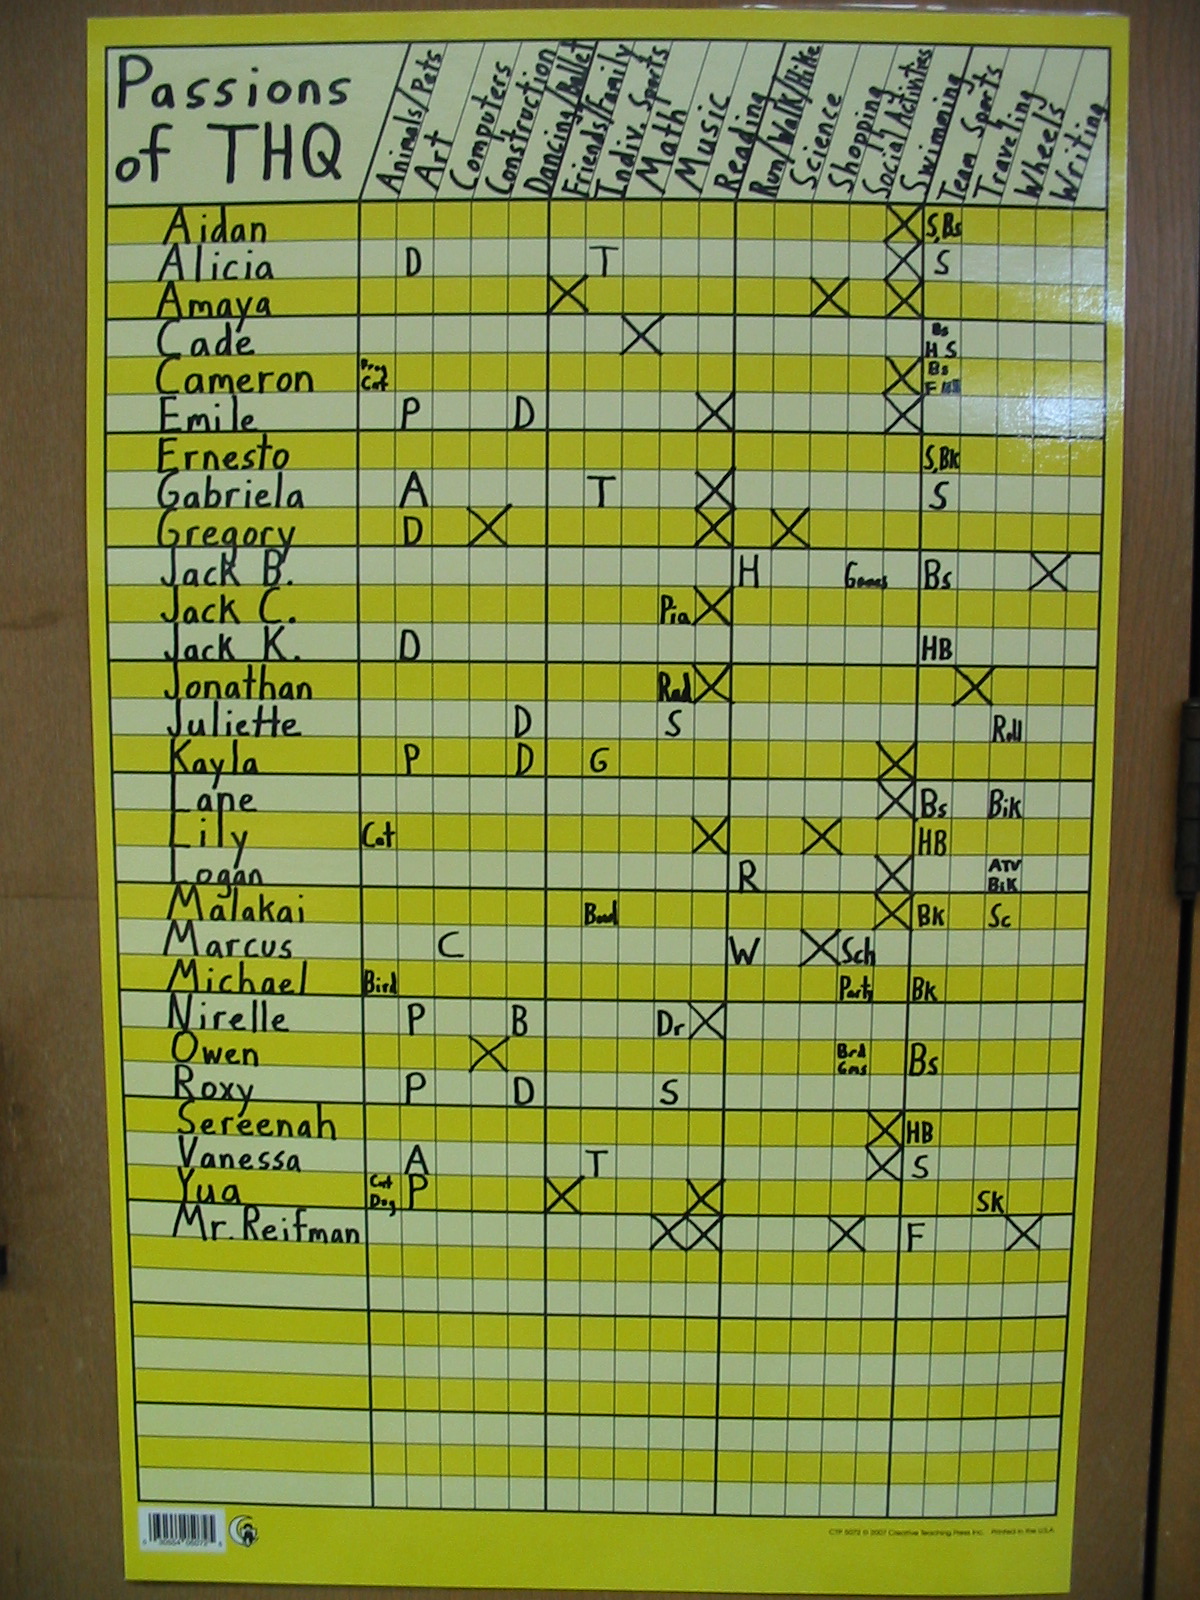 Passions
of THQ
Animals/Pets
Art
Computers
Construction
Dancing/Ballet
Friends/Family
Indiv. Sports
Math
Music
Reading
Run/Walk/Hike
Science
Shopping
Social Activities
Swimming
Team Sports
Traveling
Wheels
Writing
Aidan X S,Bs
Alicia D T X S
Amaya X X X
Cade X Bs
H S
Cameron Frog X Bs
Cat F
Emile P D X X
Ernesto S,Bk
Gabriela A T X S
Gregory D X X X
Jack B. H Games Bs X
Jack C. Pia X
Jack K. D HB
Jonathan Rad X X
Juliette D S Roll
Kayla P D G X
Lane X Bs Bik
Lily Cat X X HB
Logan R X ATV
BiK
Malakai X Bk Sc
Marcus C W X Sch
Michael Bird Party Bk
Nirelle P B Dr X
Owen X Brd Bs
Gms
Roxy P D S
Sereenah X HB
Vanessa A T X S
Yua Cat P X X Sk
Dog
Mr. Reifman X X X F X
CTP 5072 © 2007 Creative Teaching Press Inc. Printed in the U.S.A.